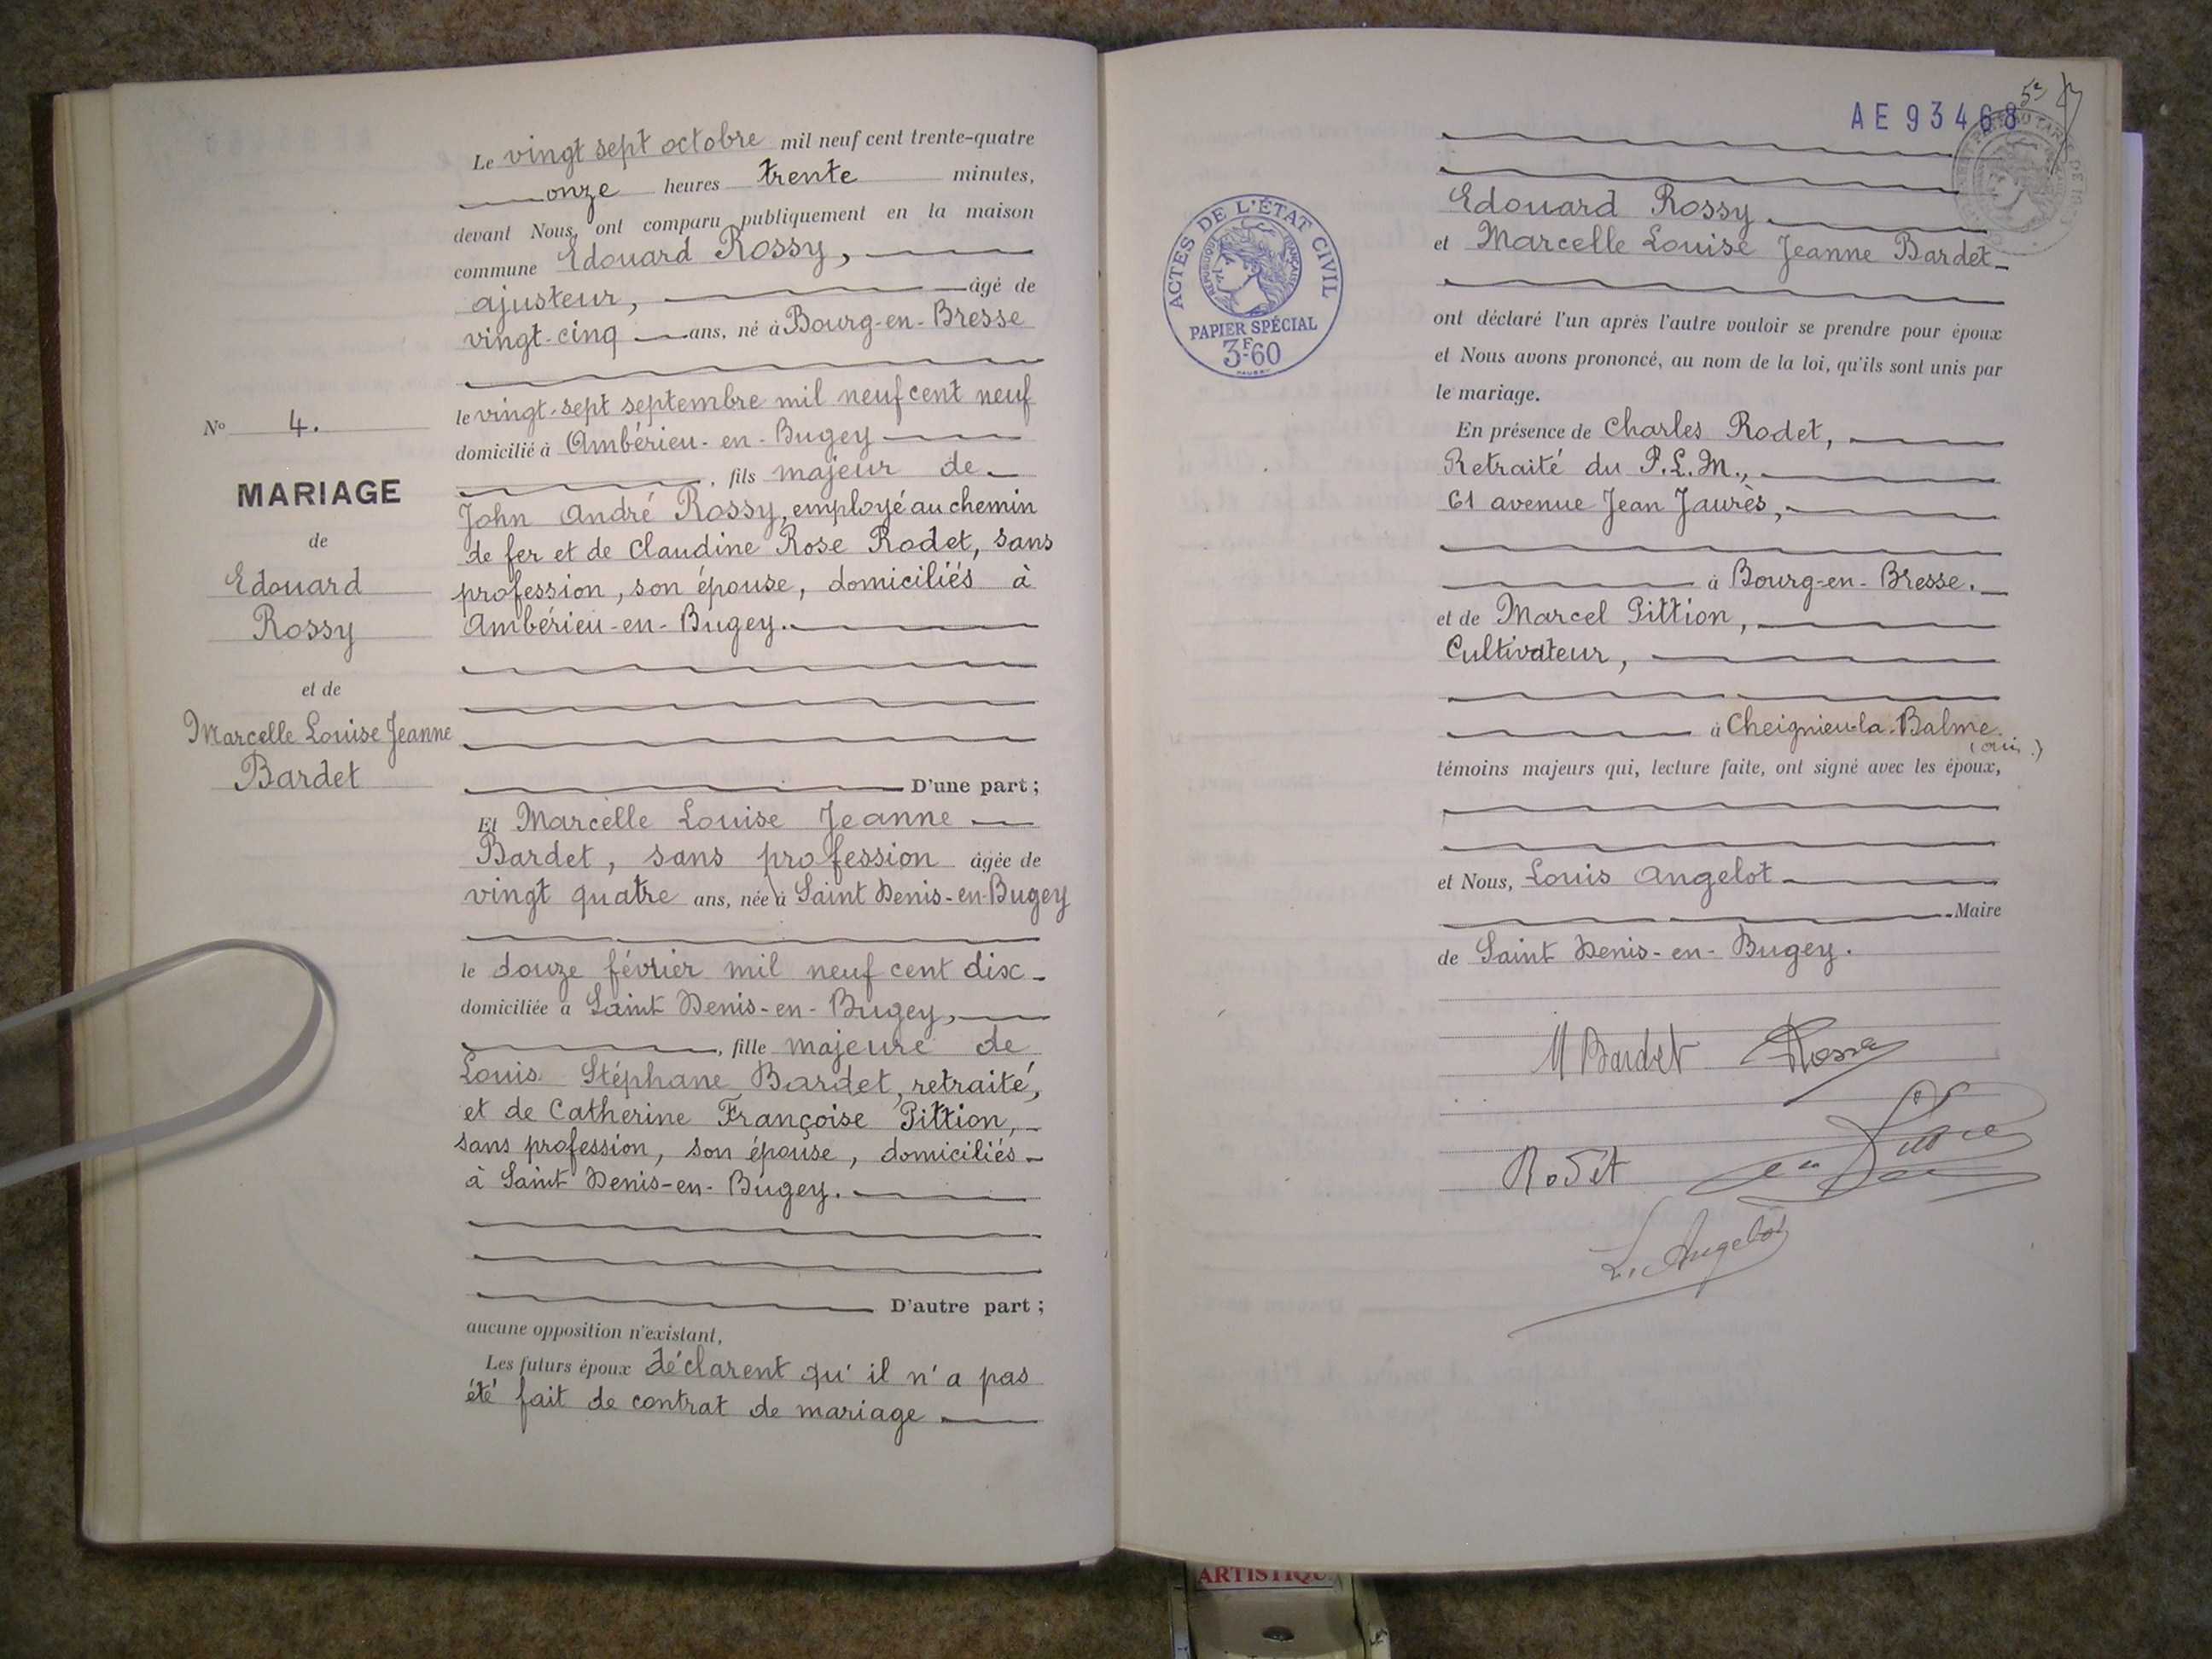 Le vingt sept octobre mil neuf cent trente-quatre
onze heures trente minutes,
devant Nous, ont comparu publiquement en la maison
commune Edouard Rossy,
ajusteur, âgé de
vingt-cinq ans, né à Bourg-en-Bresse
le vingt-sept septembre mil neuf cent neuf
domicilié à Ambérieu-en-Bugey
, fils majeur de
John André Rossy, employé au chemin
de fer et de Claudine Rose Rodet, sans
profession, son épouse, domiciliés à
Ambérieu-en-Bugey.
D'une part ;
Et Marcelle Louise Jeanne
Bardet, sans profession âgée de
vingt quatre ans, née à Saint Denis-en-Bugey
le douze février mil neuf cent dix
domiciliée à Saint Denis-en-Bugey,
, fille majeure de
Louis Stéphane Bardet, retraité,
et de Catherine Françoise Pittion,
sans profession, son épouse, domiciliés
à Saint Denis-en-Bugey.
D'autre part ;
aucune opposition n'existant,
Les futurs époux déclarent qu'il n'a pas
été fait de contrat de mariage
No 4.
MARIAGE
de
Edouard
Rossy
et de
Marcelle Louise Jeanne
Bardet
AE 93468
ACTES DE L'ÉTAT CIVIL
RÉPUBLIQUE FRANÇAISE
PAPIER SPÉCIAL
3F60
Edouard Rossy
et Marcelle Louise Jeanne Bardet
ont déclaré l'un après l'autre vouloir se prendre pour époux
et Nous avons prononcé, au nom de la loi, qu'ils sont unis par
le mariage.
En présence de Charles Rodet,
Retraité du P.L.M.,
61 avenue Jean Jaurès,
à Bourg-en-Bresse.
et de Marcel Pittion,
Cultivateur,
à Cheignieu-la-Balme.
(Ain.)
témoins majeurs qui, lecture faite, ont signé avec les époux,
et Nous, Louis Angelot
Maire
de Saint Denis-en-Bugey.
M Bardet
Rodet
L. Angelot
ARTISTIQU